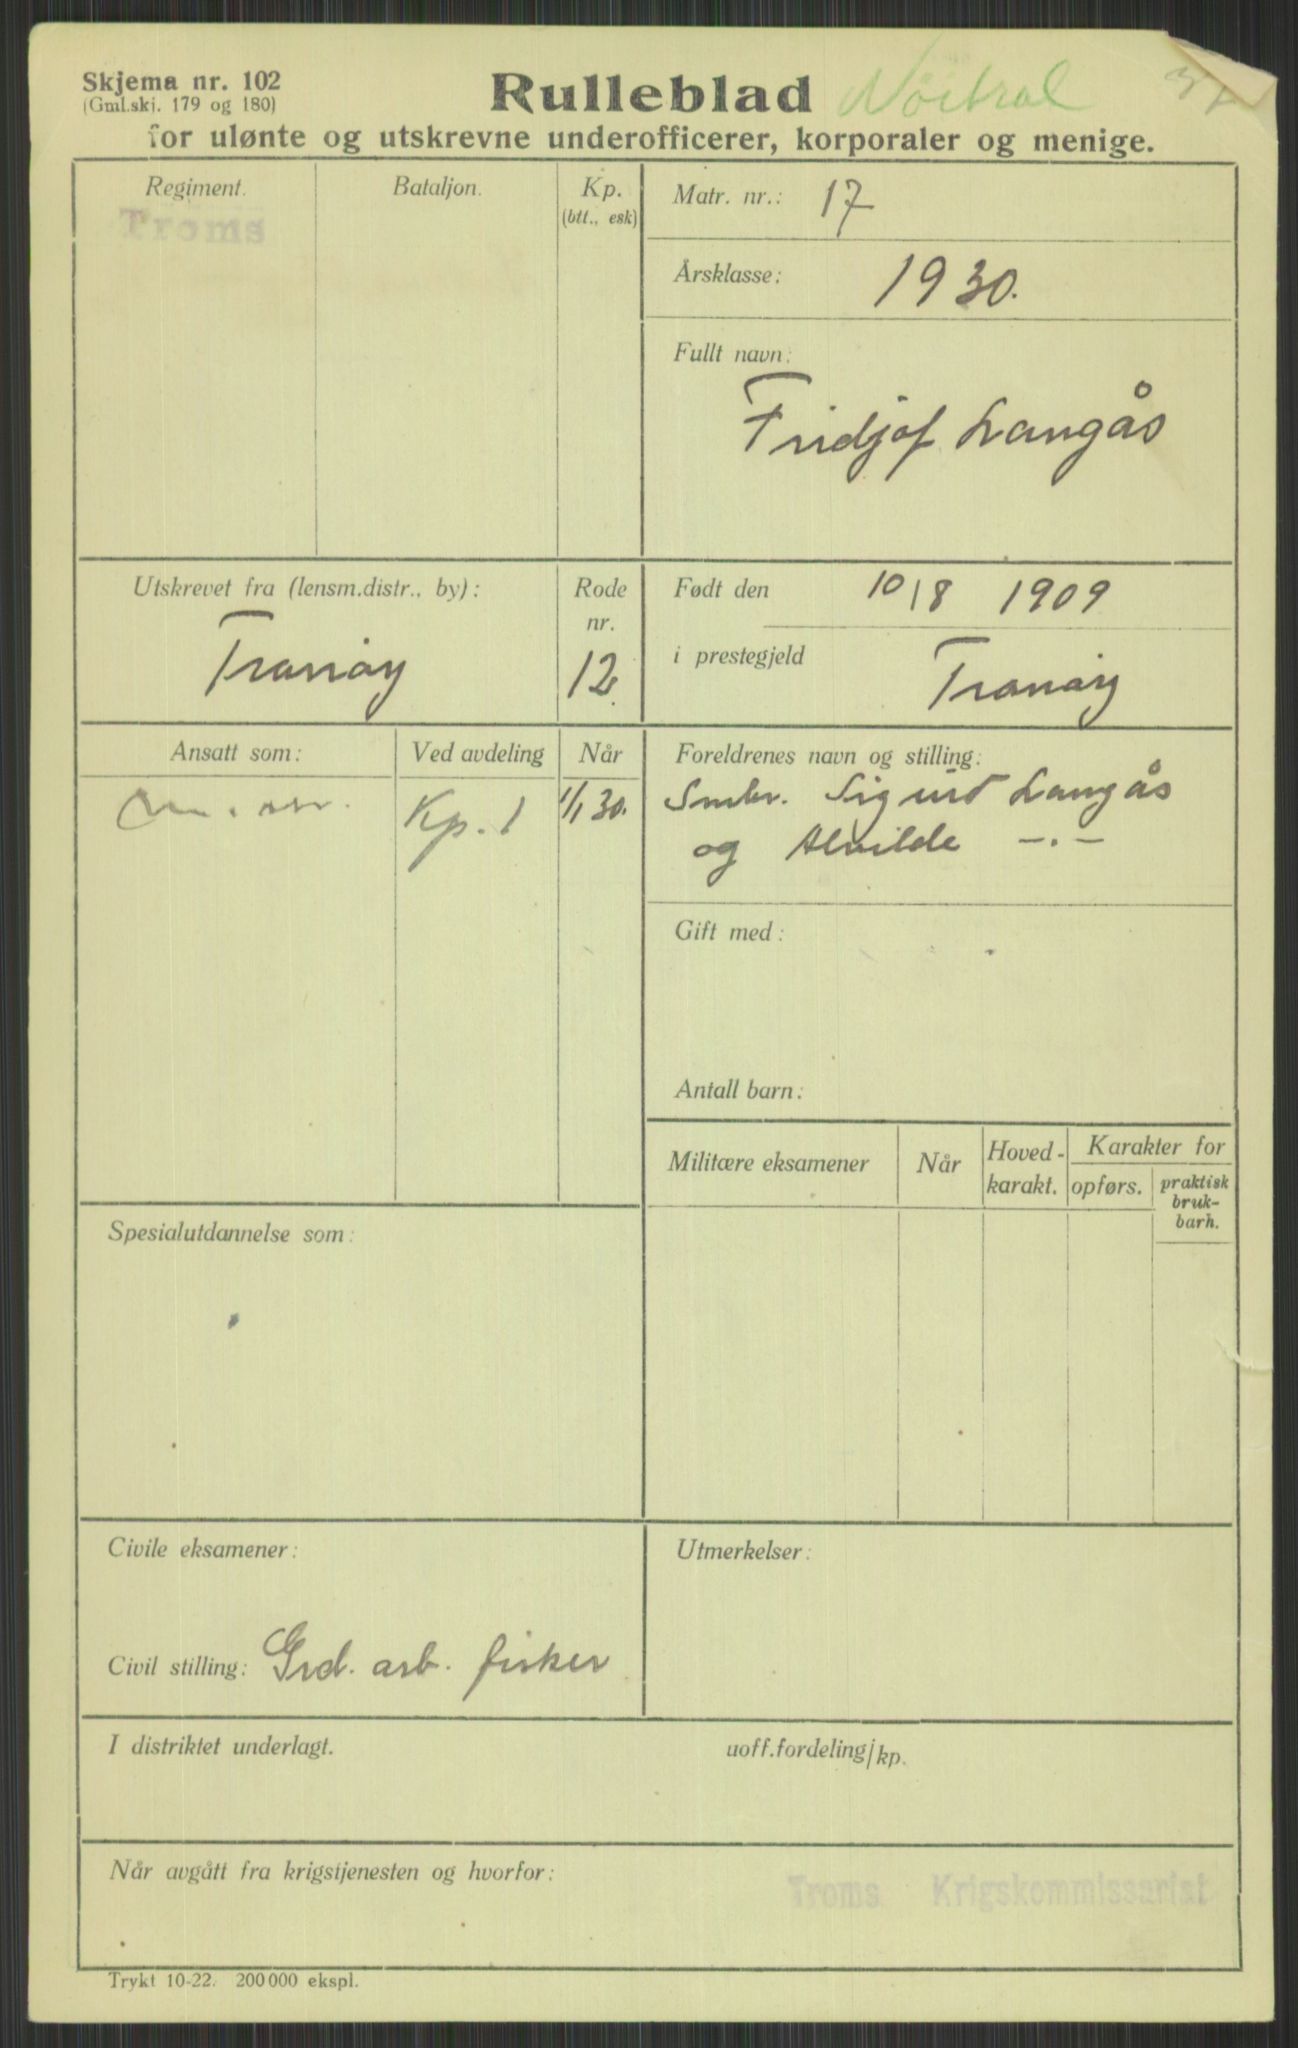 Skjema nr. 102
(Gml.skj. 179 og 180)
Rulleblad Nöitral
for ulønte og utskrevne underofficerer, korporaler og menige.
Regiment.
Troms
Bataljon.
Kp.
(btt., esk)
Matr. nr.: 17
Årsklasse: 1930.
Fullt navn:
Fridjof Langås
Utskrevet fra (lensm.distr., by):
Tranöy
Rode
nr.
12
Født den 10/8 1909
i prestegjeld Tranöy
Ansatt som:
Ved avdeling
Kp. 1
Når
1/1 30.
Foreldrenes navn og stilling:
Smbr. Sigurd Langås
og Alvilde —.—
Gift med:
Antall barn:
Militære eksamener
Når
Hoved-
karakt.
Karakter for
opførs.
praktisk
bruk-
barh.
Spesialutdannelse som:
Civile eksamener:
Civil stilling: Grd. arb. fisker
Utmerkelser:
I distriktet underlagt.
uoff.fordeling/kp.
Når avgått fra krigstjenesten og hvorfor:
Troms Krigskommissariat
Trykt 10-22. 200 000 ekspl.